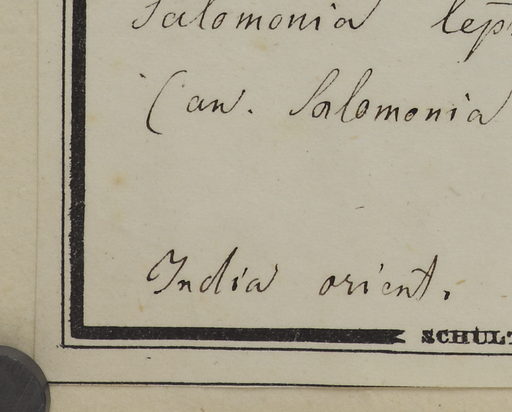 Salomonia lep
(an. Salomonia
India orient.
SCHULT